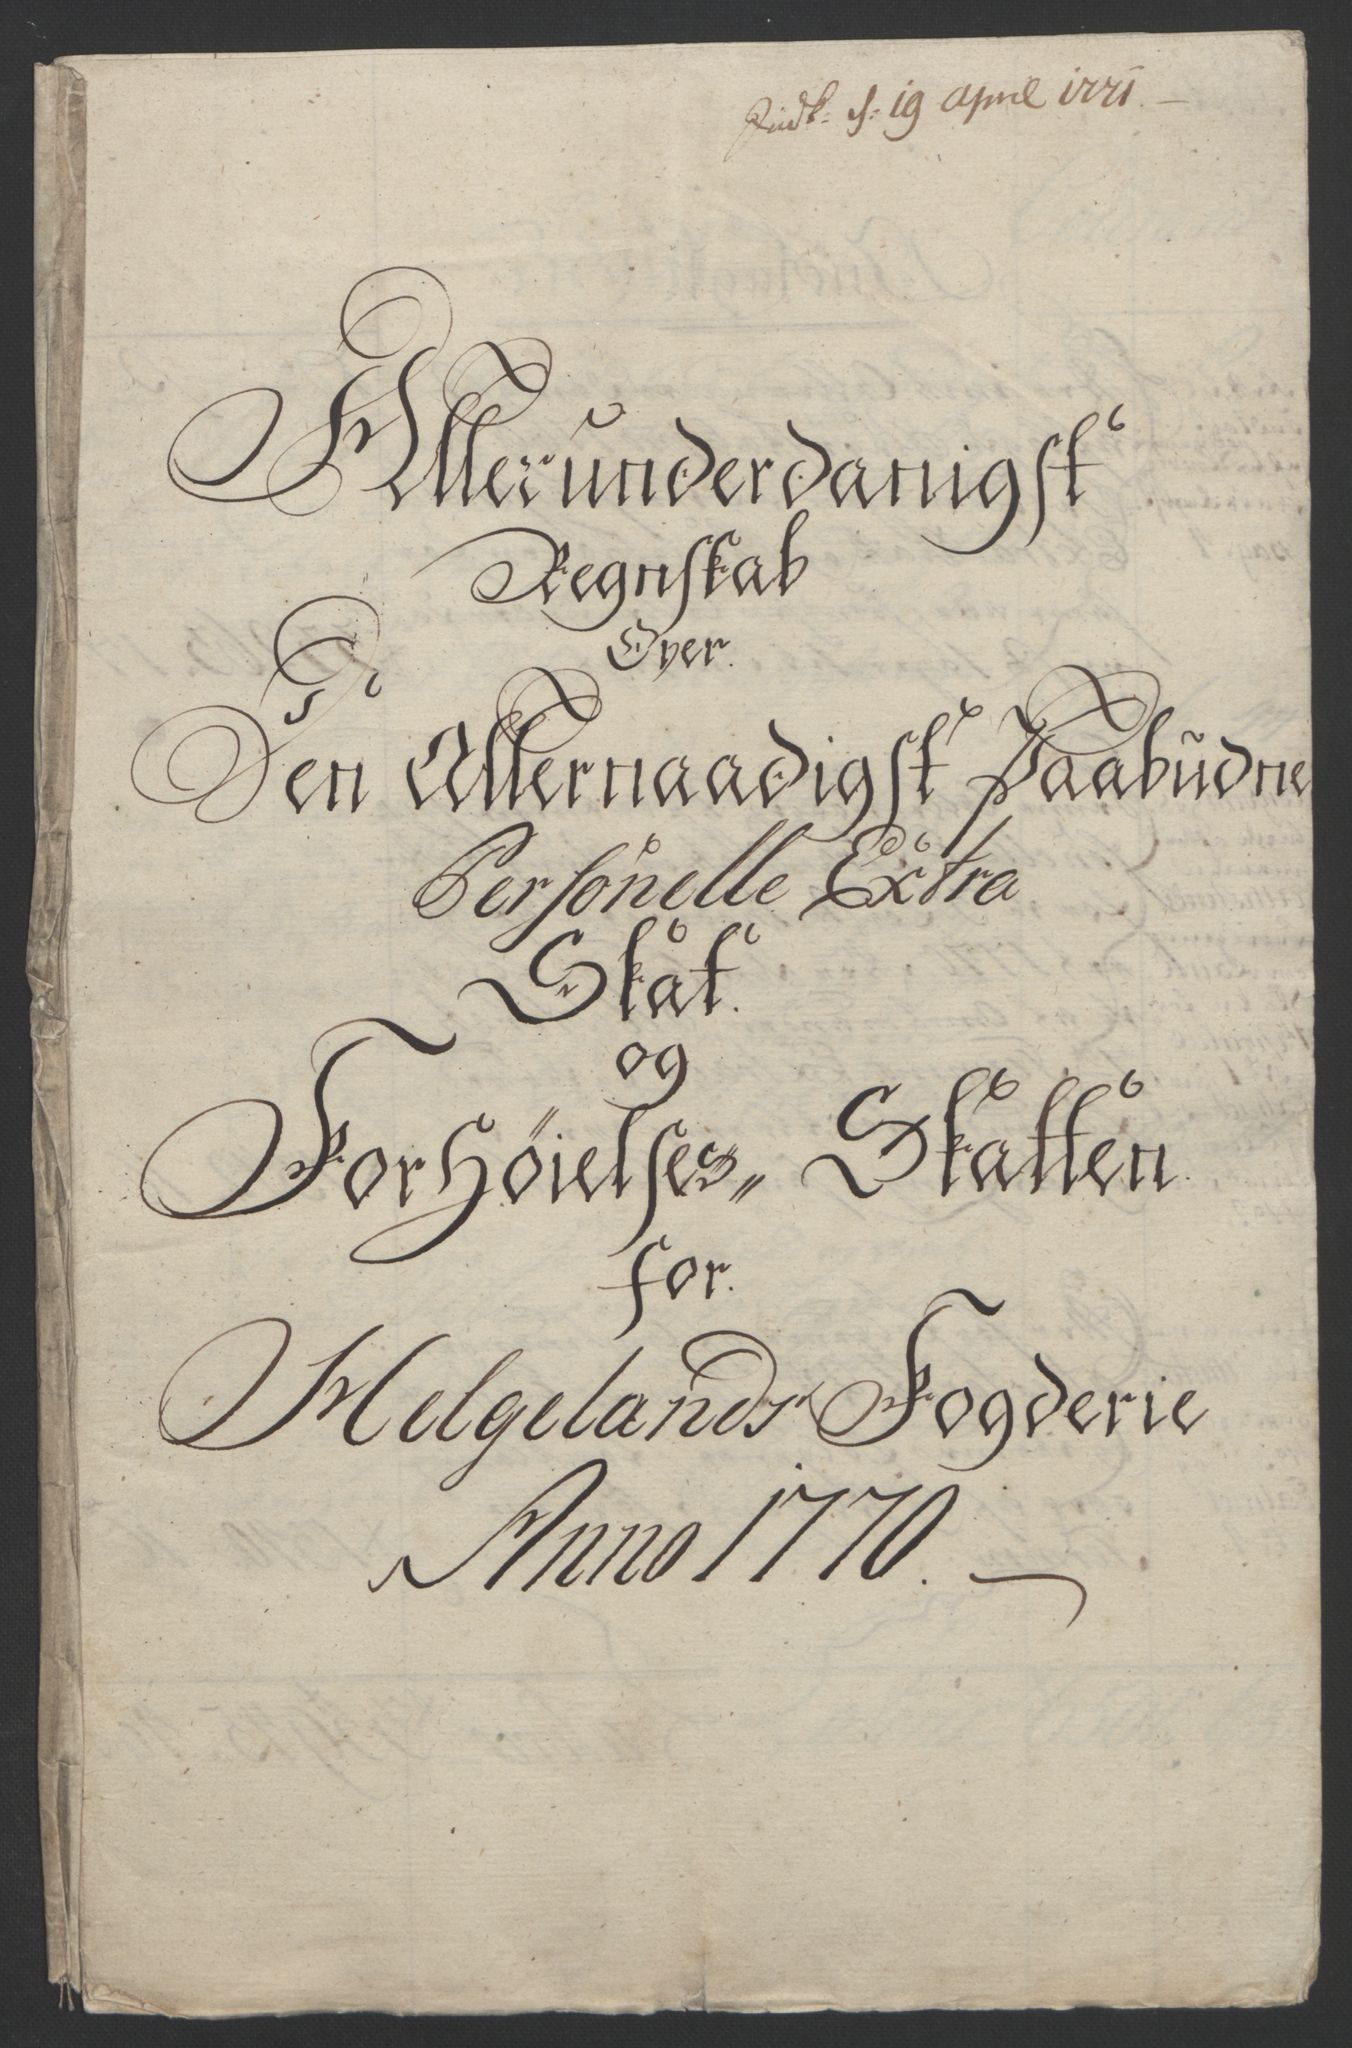 Indk: d: 19 April 1771.
Allerunderdanigst
Regnskab
Over.
Den Allernaadigst Paabudne
Personelle Extra
Skat.
og
Forhøielses Skatten.
for.
Helgelands Fogderie
Anno 1770.